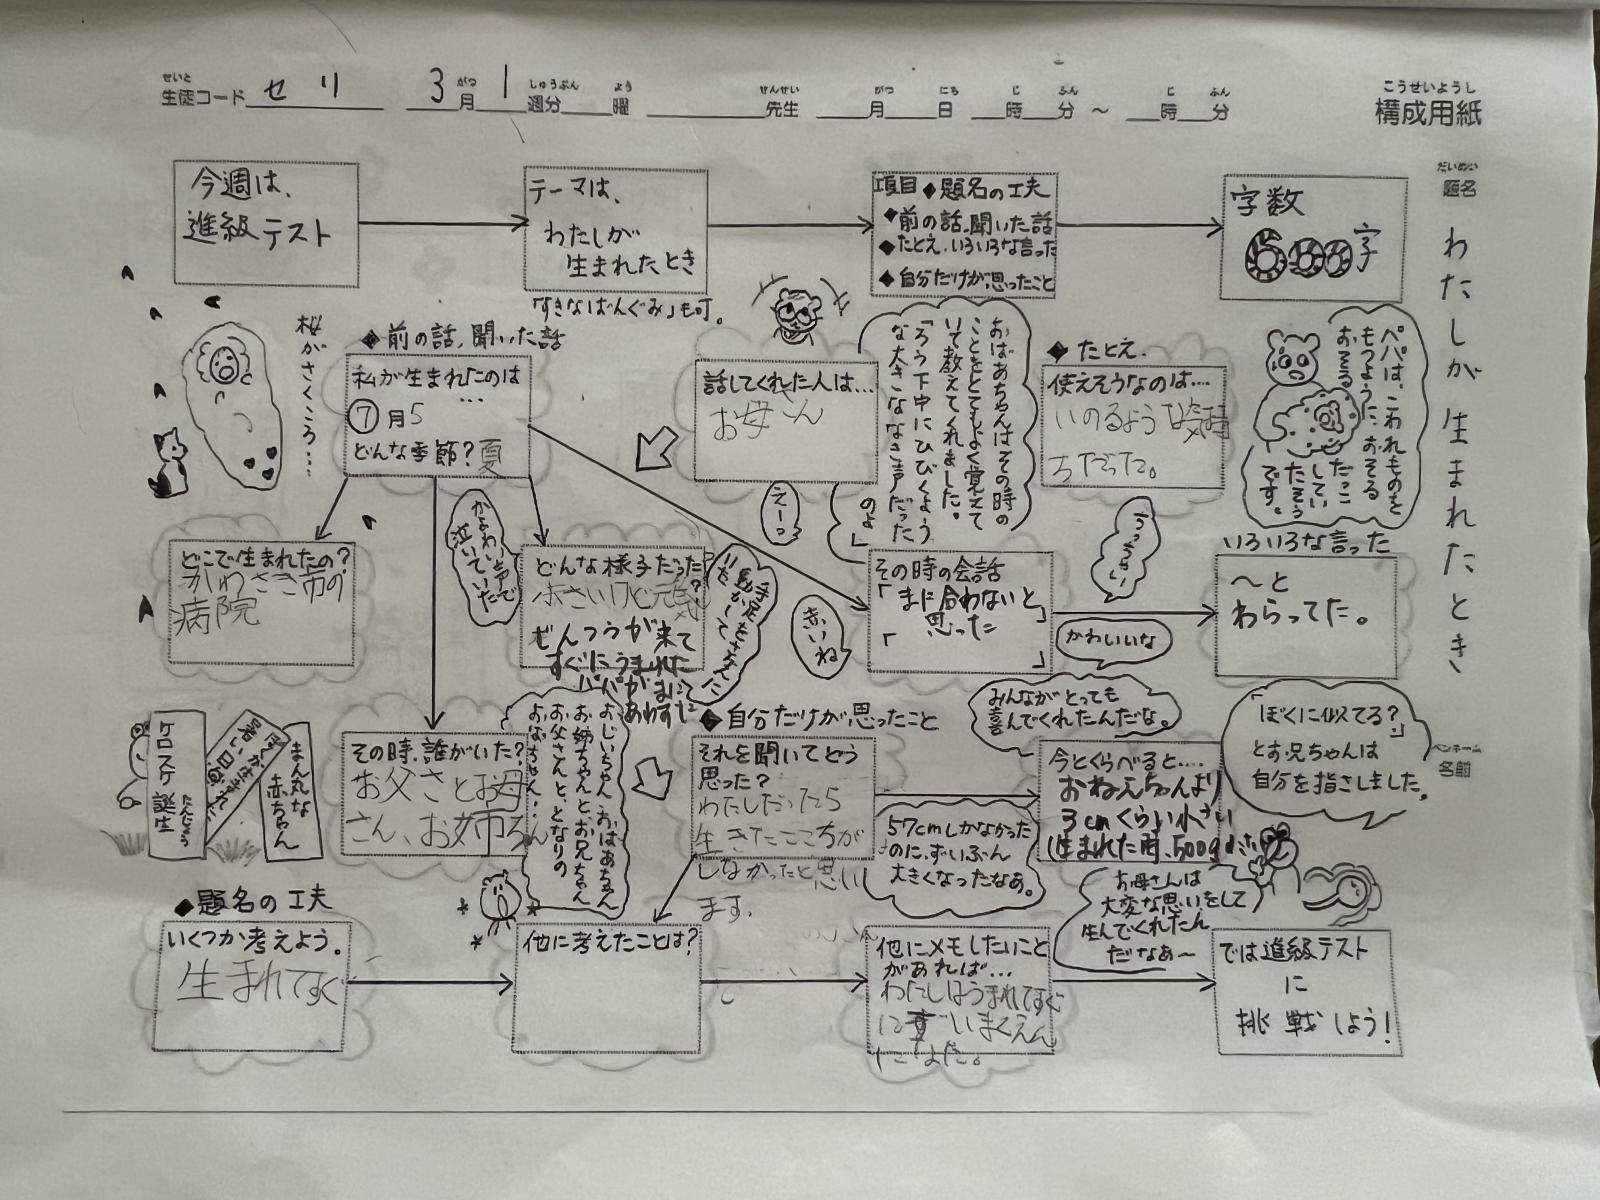 せいと
生徒コード せり 3月 1週分 曜 先生 月 日 時 分 ～ 時 分
がつ しゅうぶん よう せんせい がつ にち じ ふん じ ふん
こうせいようし
構成用紙
だいめい
題名
わたしが生まれたとき
今週は、
進級テスト
テーマは、
わたしが
生まれたとき
「すきなばんぐみ」も可。
項目◆題名の工夫
◆前の話、聞いた話
◆たとえ、いろいろな言った
◆自分だけが思ったこと
字数
600字
桜がさくころ…
◆前の話、聞いた話
私が生まれたのは
…
⑦月5
どんな季節?夏
話してくれた人は…
お母さん
おばあちゃんはその時の
ことをとてもよく覚えて
いて教えてくれました。
「ろう下中にひびくよう
な大きななき声だった
のよ」
えーっ
◆たとえ
使えそうなのは…
いのるような気持
ちだった。
パパは、こわれものを
もつように、おそる
おそる
だっこ
してい
たそう
です。
どこで生まれたの?
かわさき市の
病院
かよわい声で
泣いていた
どんな様子だった?
小さいけど元気
ぜんつうが来て
すぐにうまれた
パパがまに
あわずに
手足をさかんに
動かして
いた
赤いね
その時の会話
「まに合わないと」
思った
「 」
かわいいな
いろいろな言った
～と
わらってた。
まん丸な
赤ちゃん
ぼくが生まれた
暑い日
ケロスケ誕生
たんじょう
その時、誰がいた?
お父さとお母
さん、お姉ちゃん
おじいちゃん、おばあちゃん
お姉ちゃんとお兄ちゃん
お父さんと、となりの
よねちゃん…
◆自分だけが思ったこと
それを聞いてどう
思った?
わたしだったら
生きたここちが
しなかったと思い
ます。
みんながとっても
喜んでくれたんだな。
今とくらべると…
おねえちゃんより
3cmくらい小さい
生まれた時、500g
57cmしかなかった
のに、ずいぶん
大きくなったなあ。
「ぼくに似てる?」
とお兄ちゃんは
自分を指さしました。
ペンネーム
名前
お母さんは
大変な思いをして
生んでくれたん
だなあ～
◆題名の工夫
いくつか考えよう。
生まれてすぐ
他に考えたことは?
他にメモしたいこと
があれば…
わたしはうまれてすぐ
では進級テスト
に
挑戦しよう!